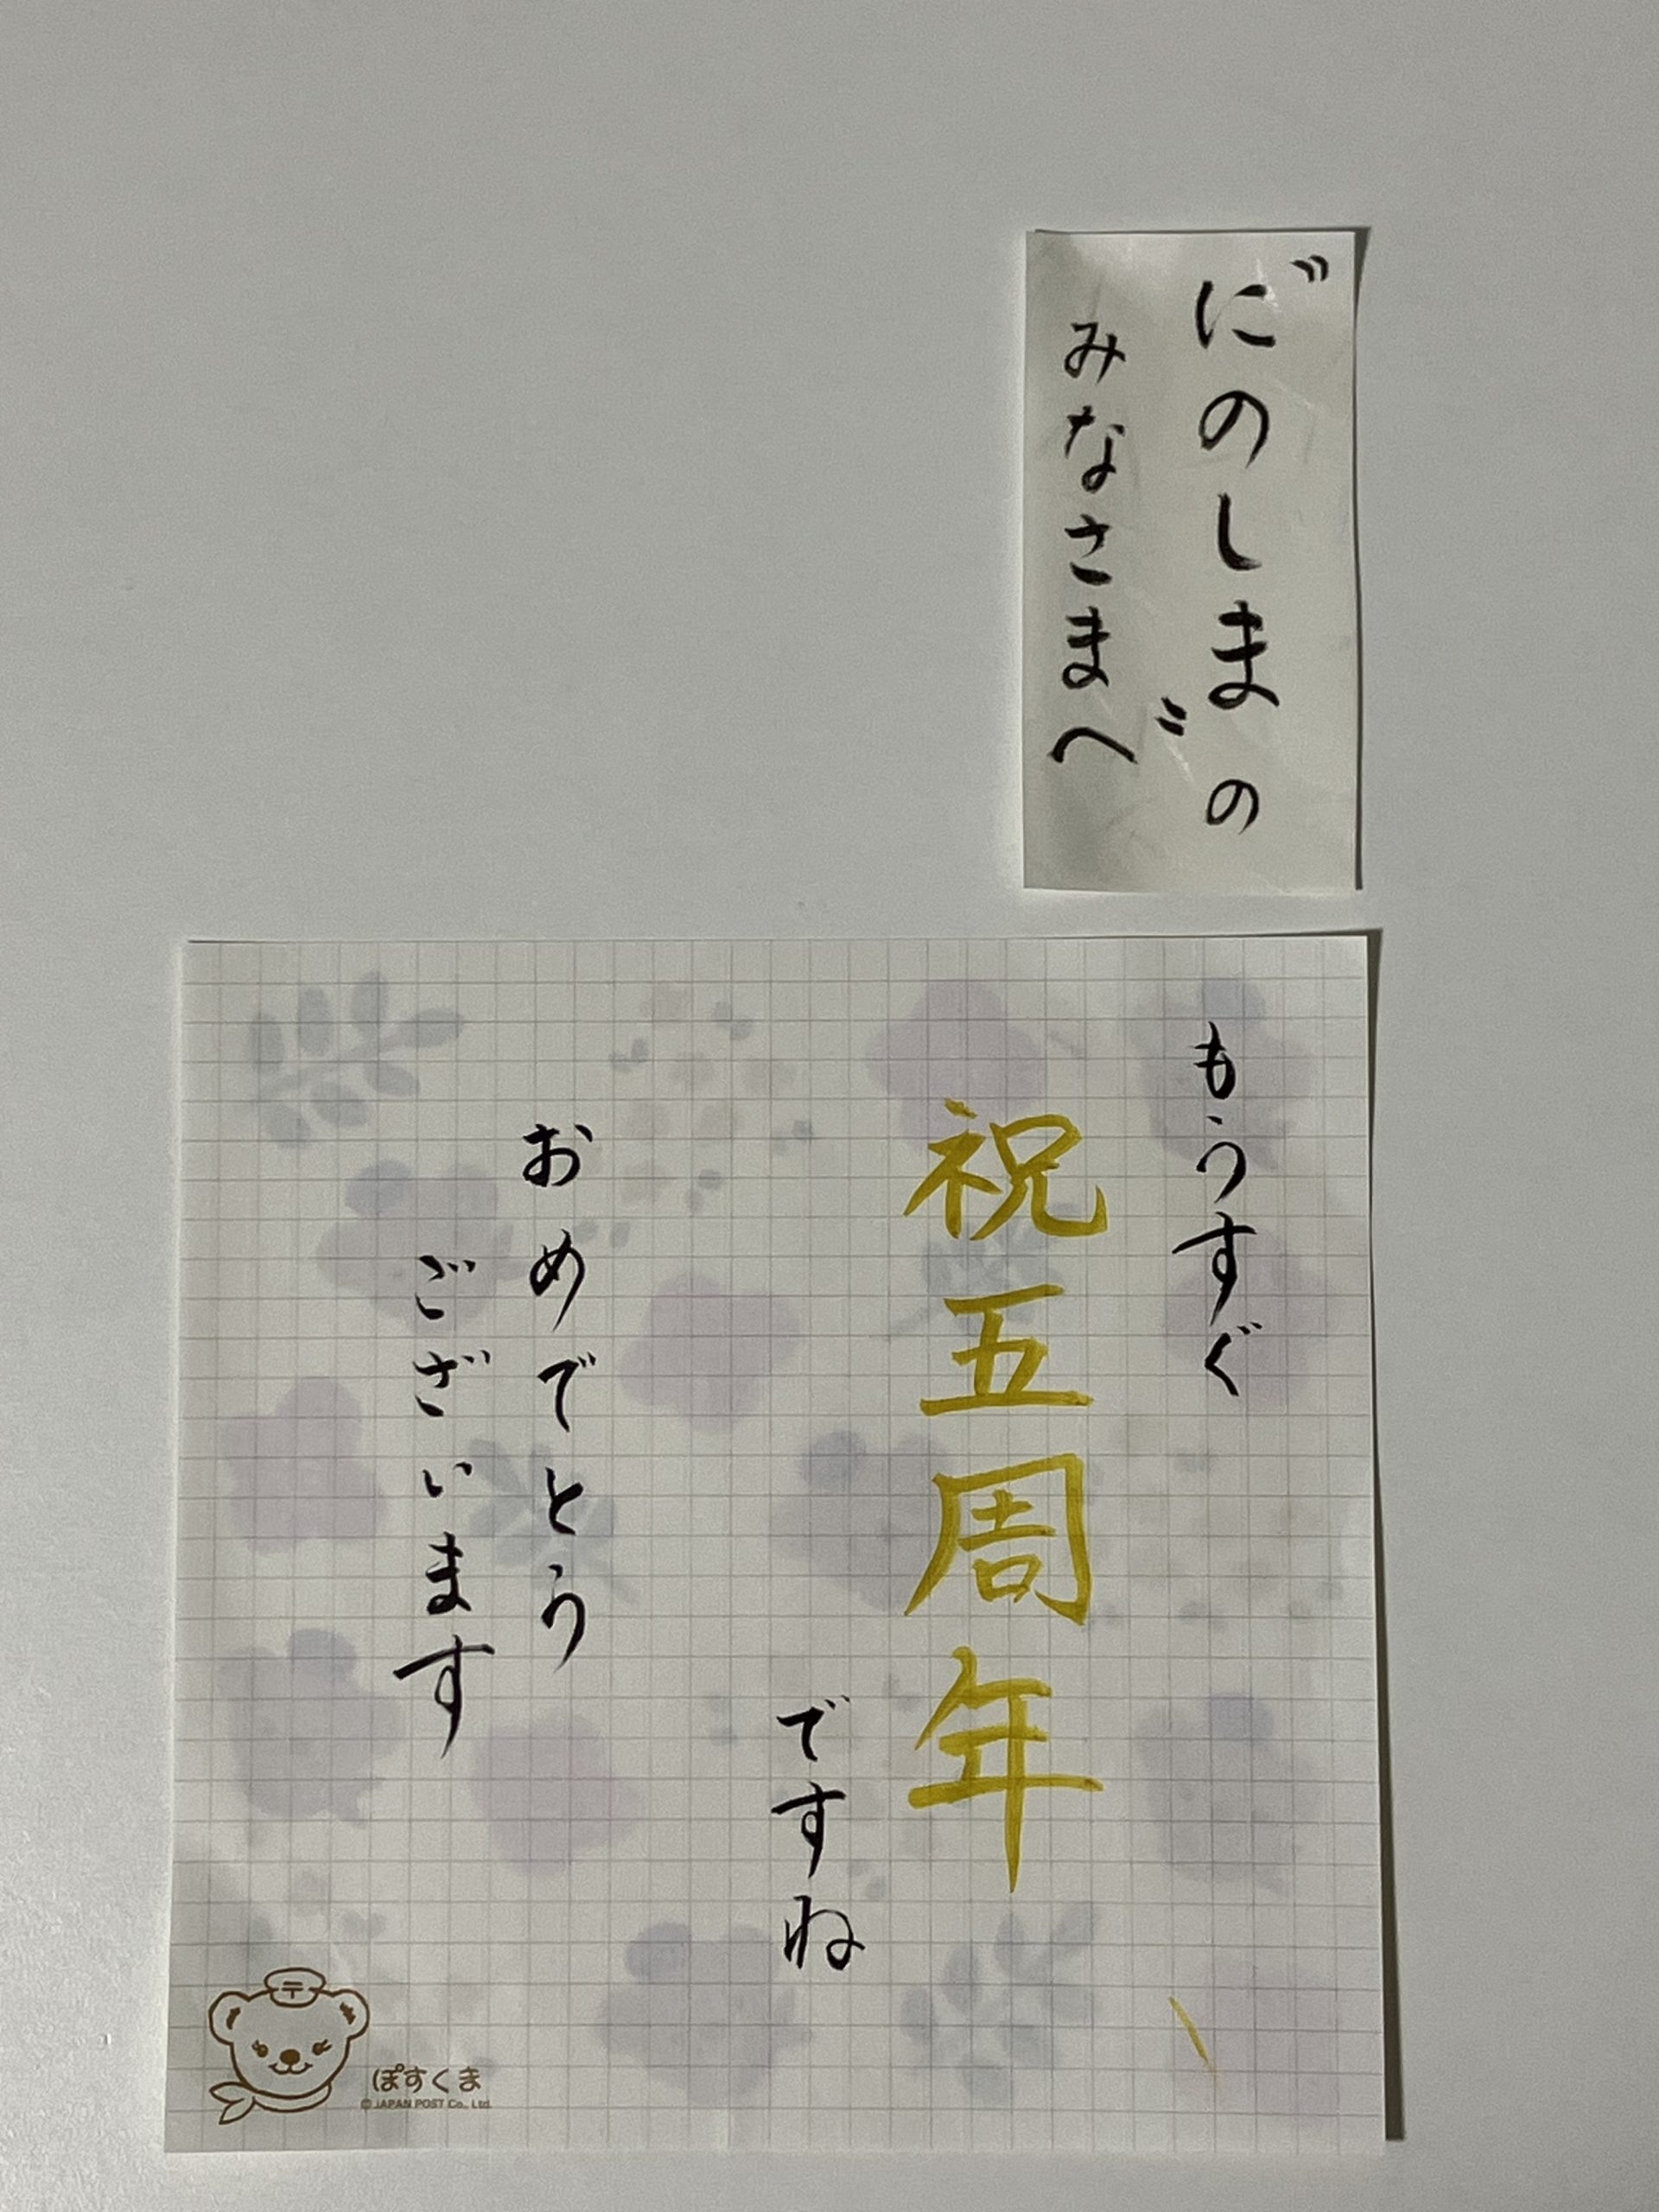 〝にのしま〟の
みなさまへ
もうすぐ
祝五周年
ですね
おめでとう
ございます
〒
ぽすくま
© JAPAN POST Co., Ltd.